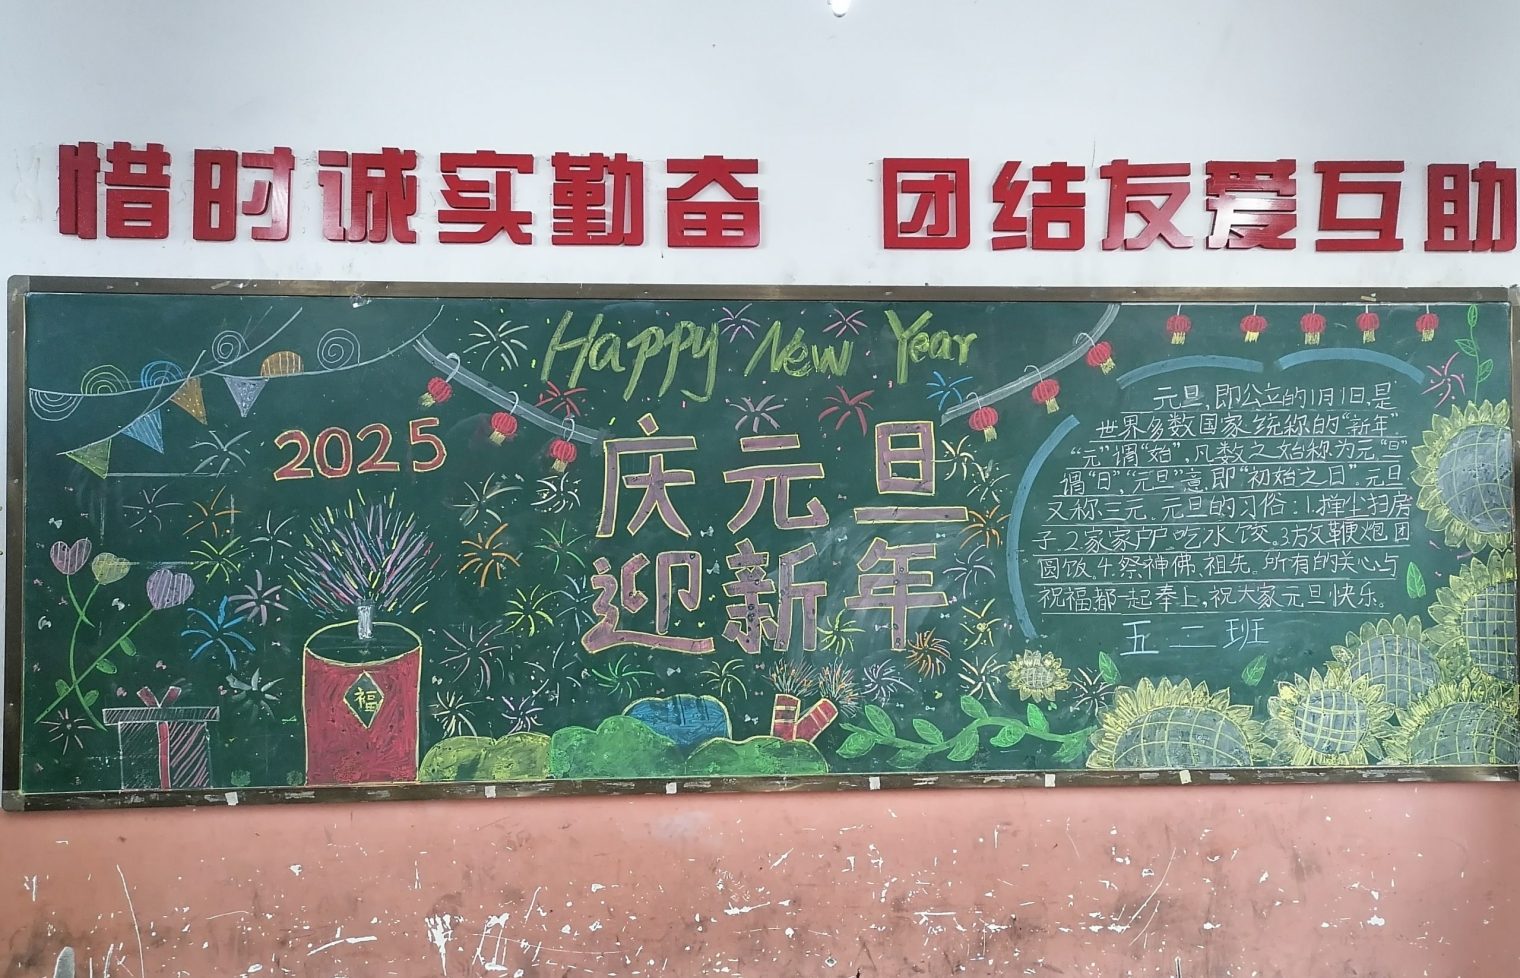 惜时诚实勤奋 团结友爱互助
Happy New Year
2025
庆元旦
迎新年
福
元旦,即公立的1月1日,是
世界多数国家统称的“新年”.
“元”谓“始”,凡数之始称为元“旦”
谓“日”,“元旦”意即“初始之日”.元旦
又称三元.元旦的习俗:1.掸尘扫房
子.2.家家户户吃水饺.3.放鞭炮团
圆饭.4.祭神佛、祖先.所有的关心与
祝福都一起奉上,祝大家元旦快乐。
五二班